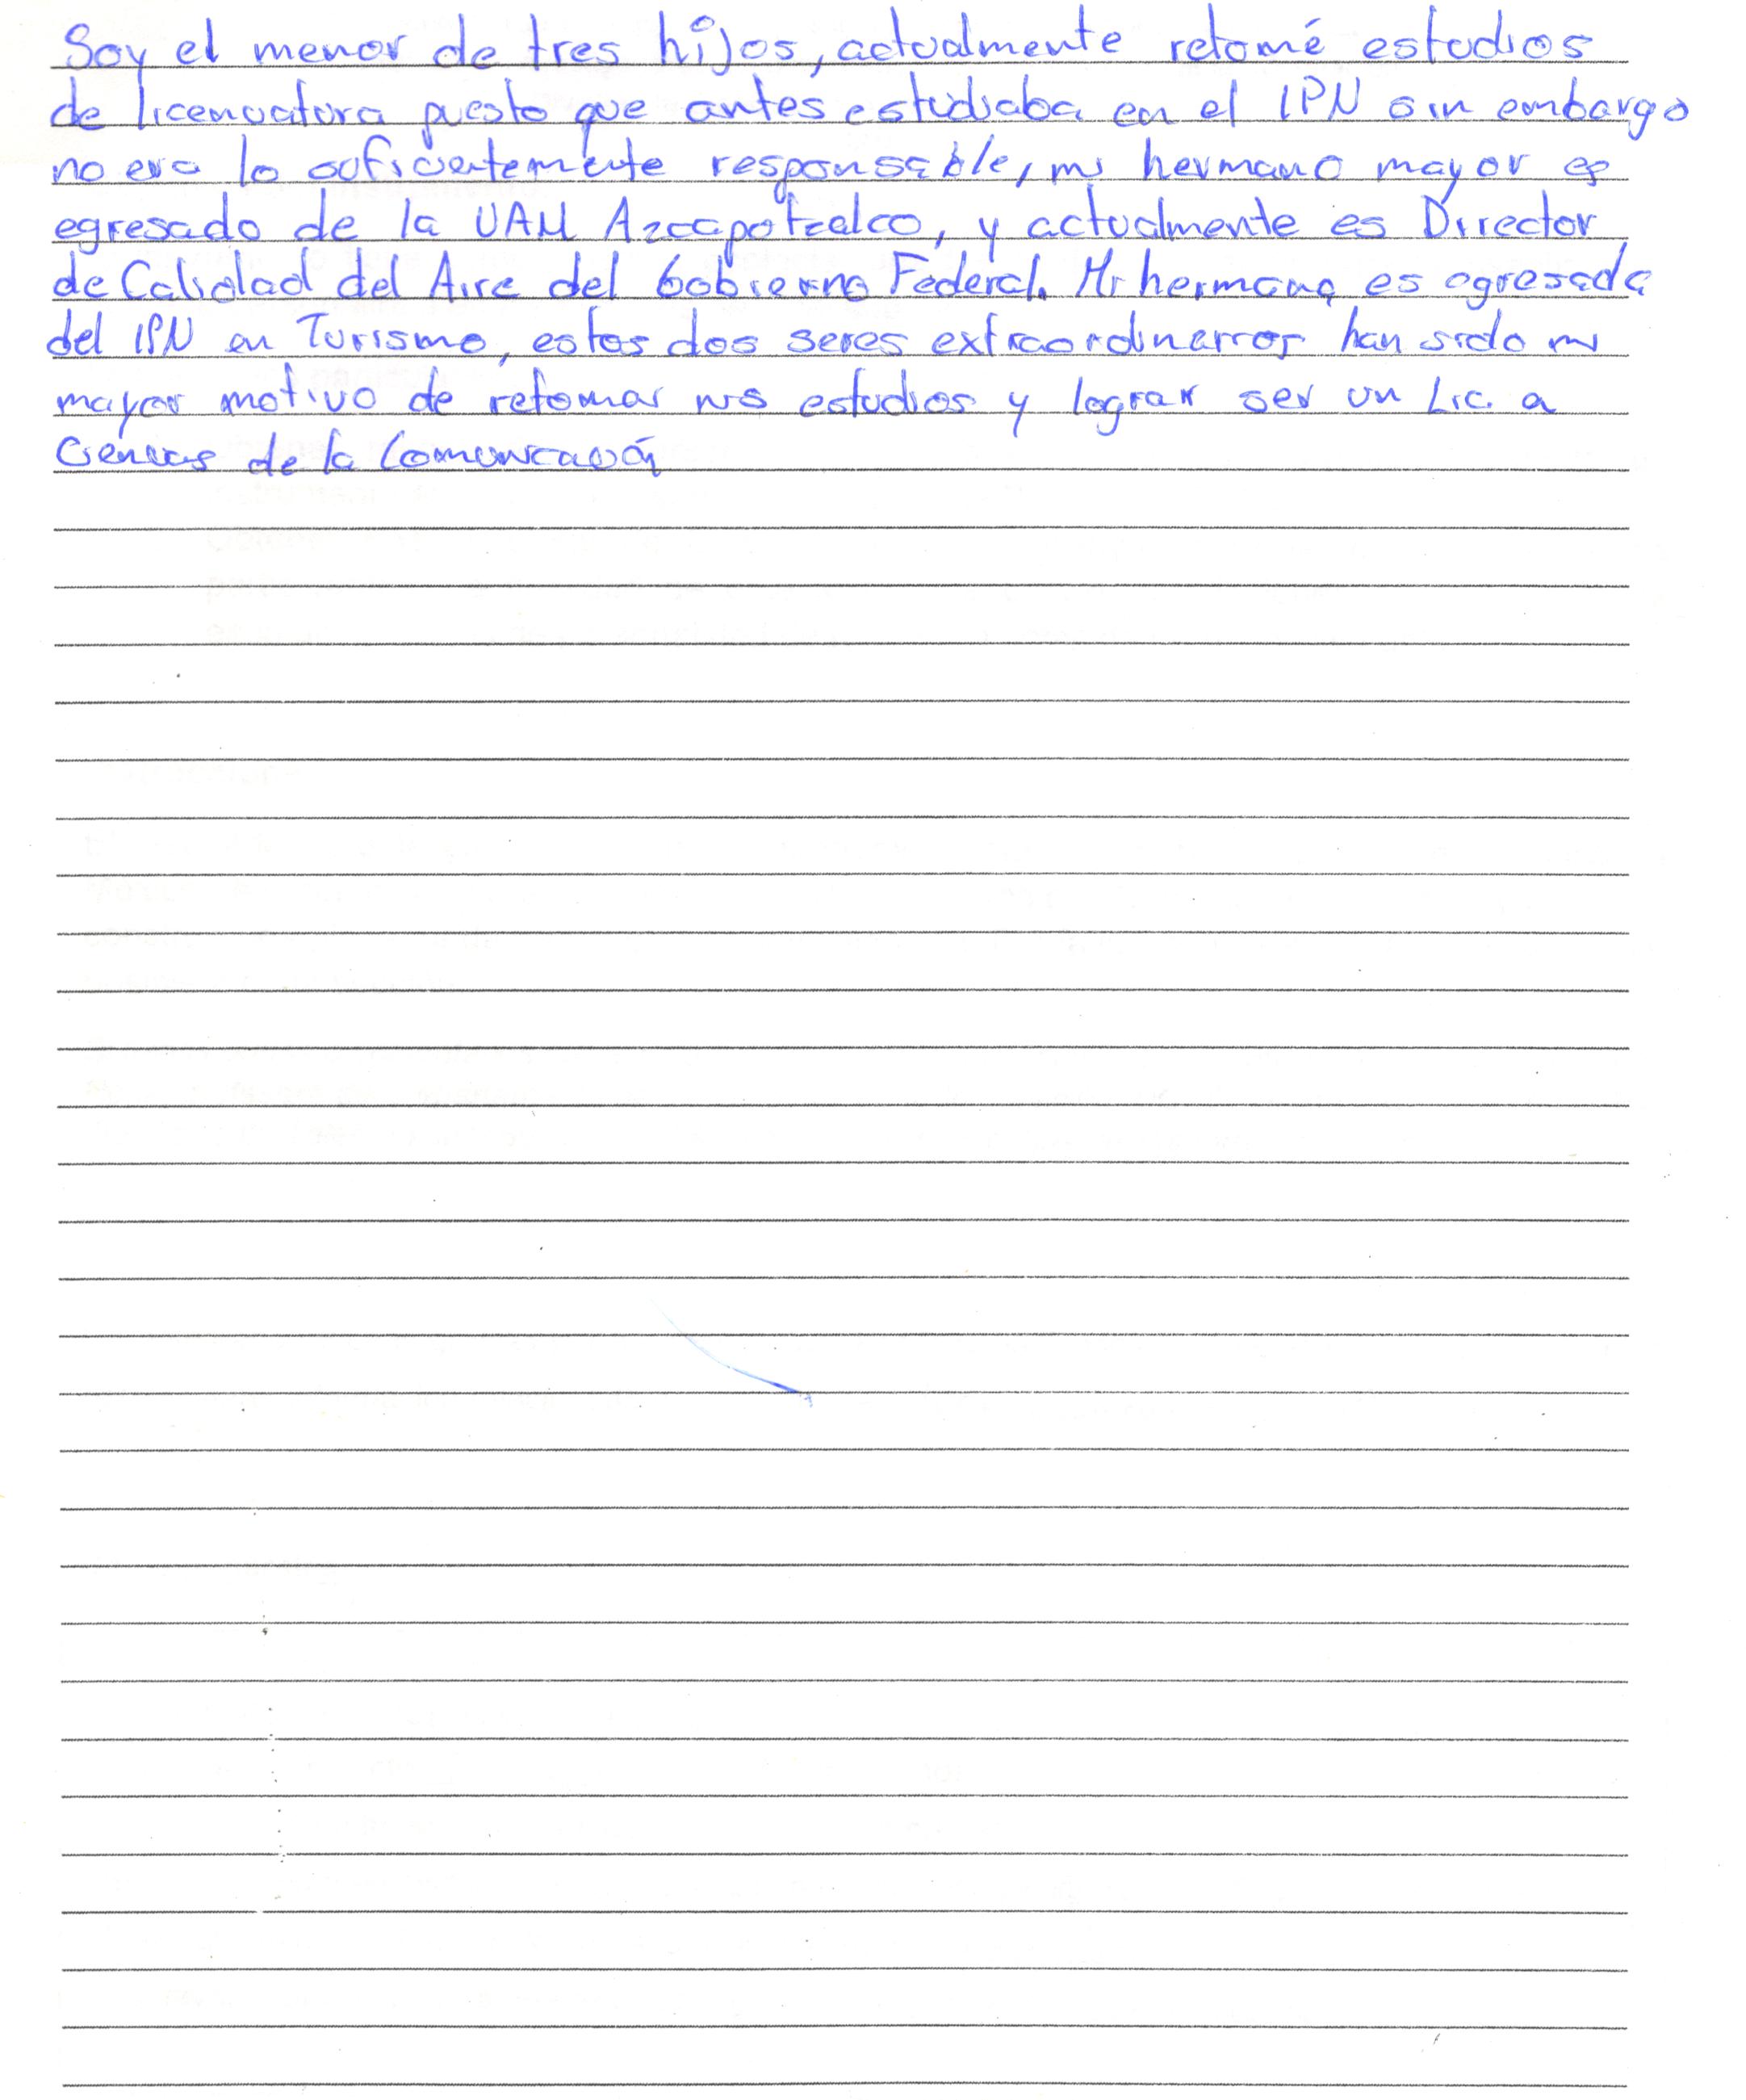 Soy el menor de tres hijos, actualmente retomé estudios
de licenciatura puesto que antes estudiaba en el IPN sin embargo
no era lo suficientemente responsable, mi hermano mayor es
egresado de la UAM Azcapotzalco, y actualmente es Director
de Calidad del Aire del Gobierno Federal. Mi hermana es egresada
del IPN en Turismo, estos dos seres extraordinarios han sido mi
mayor motivo de retomar mis estudios y lograr ser un Lic. a
Ciencias de la Comunicación